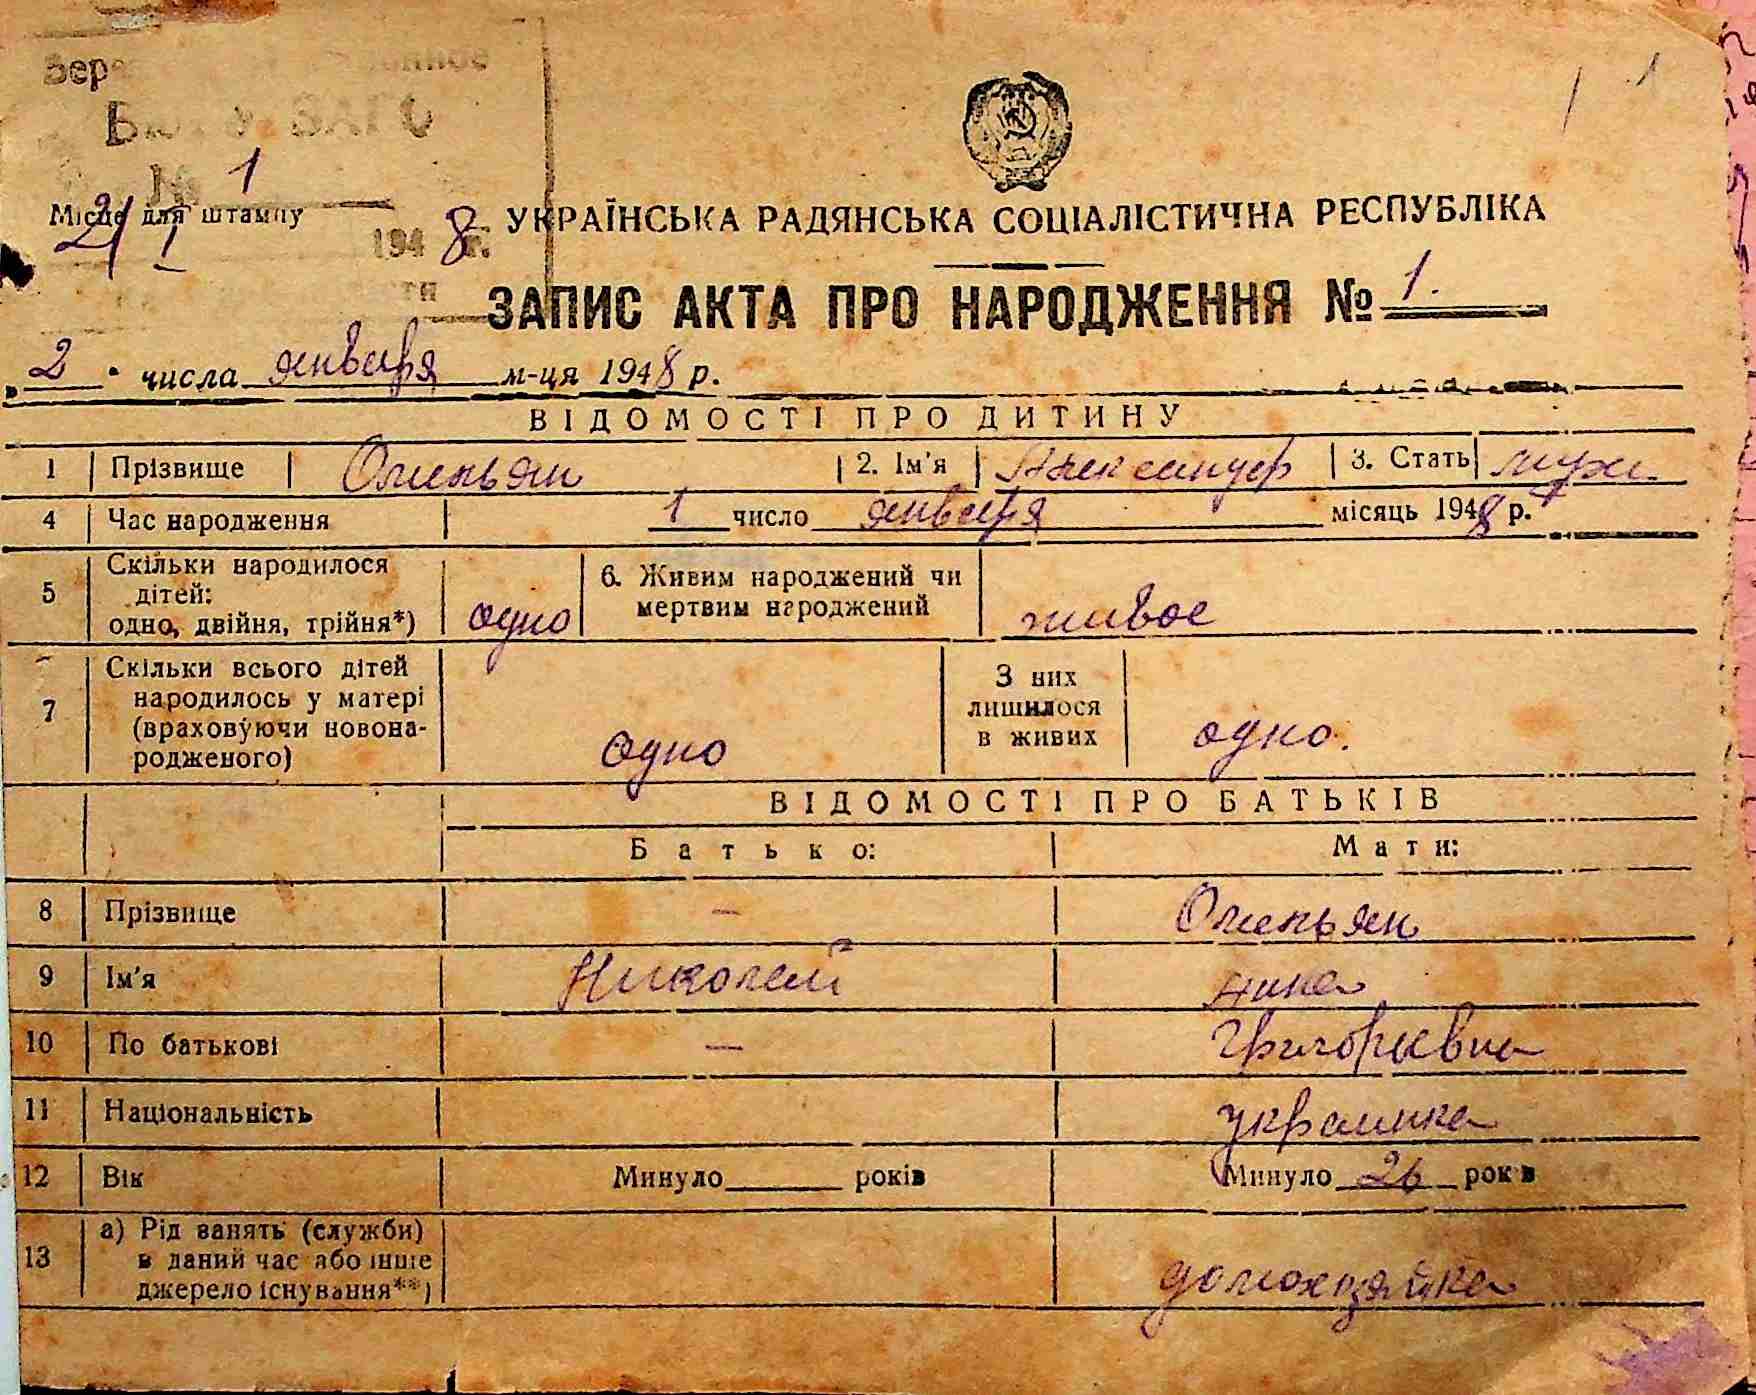 Бере
ЗАГС
№ 1
Місце для штампу
2/I 1948 г.
УКРАЇНСЬКА РАДЯНСЬКА СОЦІАЛІСТИЧНА РЕСПУБЛІКА
ЗАПИС АКТА ПРО НАРОДЖЕННЯ № 1.
„ 2 " числа января м-ця 1948 р.
ВІДОМОСТІ ПРО ДИТИНУ
1 Прізвище Омельян 2. Ім'я Александр 3. Стать муж.
4 Час народження 1 число января місяць 1948 р.
5 Скільки народилося
дітей:
одно, двійня, трійня*) одно 6. Живим народжений чи
мертвим народжений живое
7 Скільки всього дітей
народилось у матері
(враховуючи новона-
родженого) одно З них
лишилося
в живих одно.
ВІДОМОСТІ ПРО БАТЬКІВ
Батько: Мати:
8 Прізвище — Омельян
9 Ім'я Николай Нина
10 По батькові — Григорьевна
11 Національність украинка
12 Вік Минуло ______ років Минуло 26 років
13 а) Рід занять (служби)
в даний час або інше
джерело існування**) домохозяйка